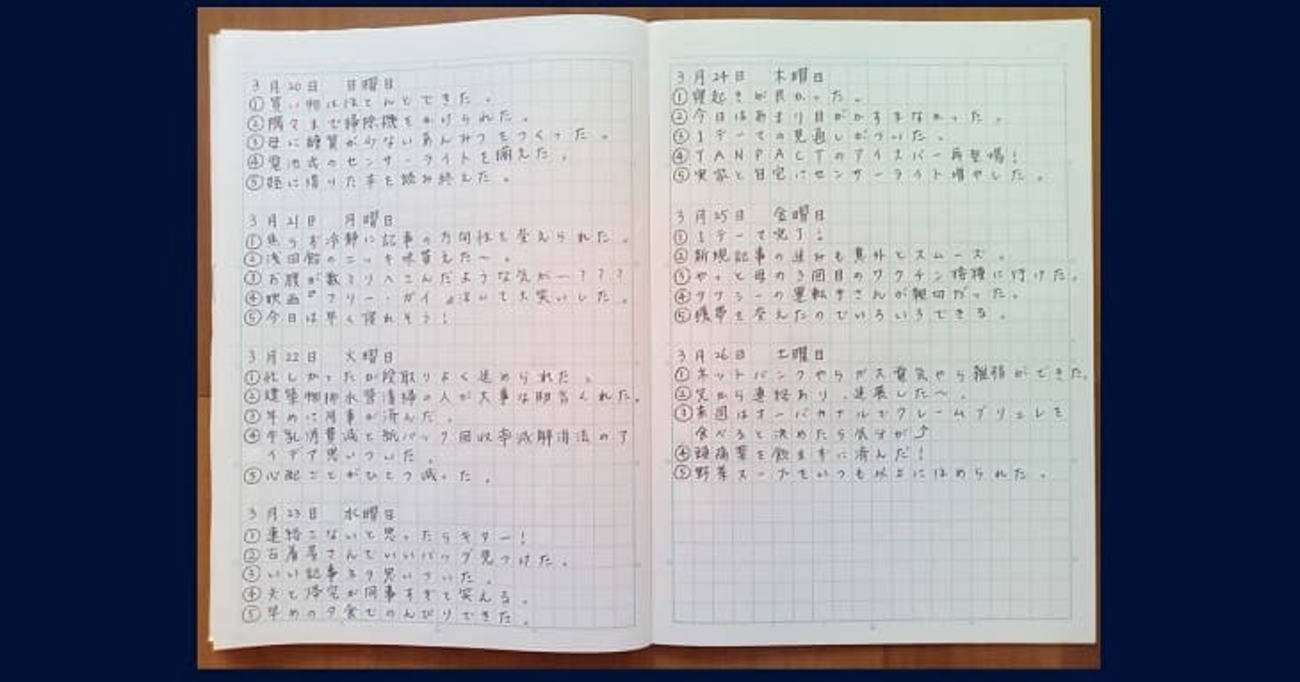 3月20日 日曜日
①買い物はほとんどできた。
②隅々まで掃除機をかけられた。
③母に糖質が少ないあんみつをつくった。
④電池式のセンサーライトを揃えた。
⑤姪に借りた本を読み終えた。
3月21日 月曜日
①焦らず冷静に記事の方向性を変えられた。
②浅田飴のニッキ味買えた〜。
③お腹が数ミリへこんだような気が―???
④映画『フリー・ガイ』泣いて大笑いした。
⑤今日は早く寝れそう!
3月22日 火曜日
①忙しかったが段取りよく進められた。
②建築物排水管清掃の人が大事な助言くれた。
③早めに用事が済んだ。
④牛乳消費減と紙パック回収率減解消法のア
イデア思いついた。
⑤心配ごとがひとつ減った。
3月23日 水曜日
①連絡こないと思ったらキター!
②古着屋さんでいいバッグ見つけた。
③いい記事ネタ思いついた。
④夫と帰宅が同事すぎて笑える。
⑤早めの夕食でのんびりできた。
3月24日 木曜日
①寝起きが良かった。
②今日はあまり目がかすまなかった。
③1テーマの見通しがついた。
④TANPACTのアイスバー再登場!
⑤実家と自宅にセンサーライト増やした。
3月25日 金曜日
①1テーマ完了!
②新規記事の進みも意外とスムーズ。
③やっと母の3回目のワクチン接種に行けた。
④タクシーの運転手さんが親切だった。
⑤携帯を変えたのでいろいろできる。
3月26日 土曜日
①ネットバンクやらガス電気やら雑務ができた。
②兄から連絡あり、進展した〜。
③来週はオーバカナルでクレームブリュレを
食べると決めたら気分が⤴
④頭痛薬を飲まずに済んだ!
⑤野菜スープをいつも以上にほめられた。